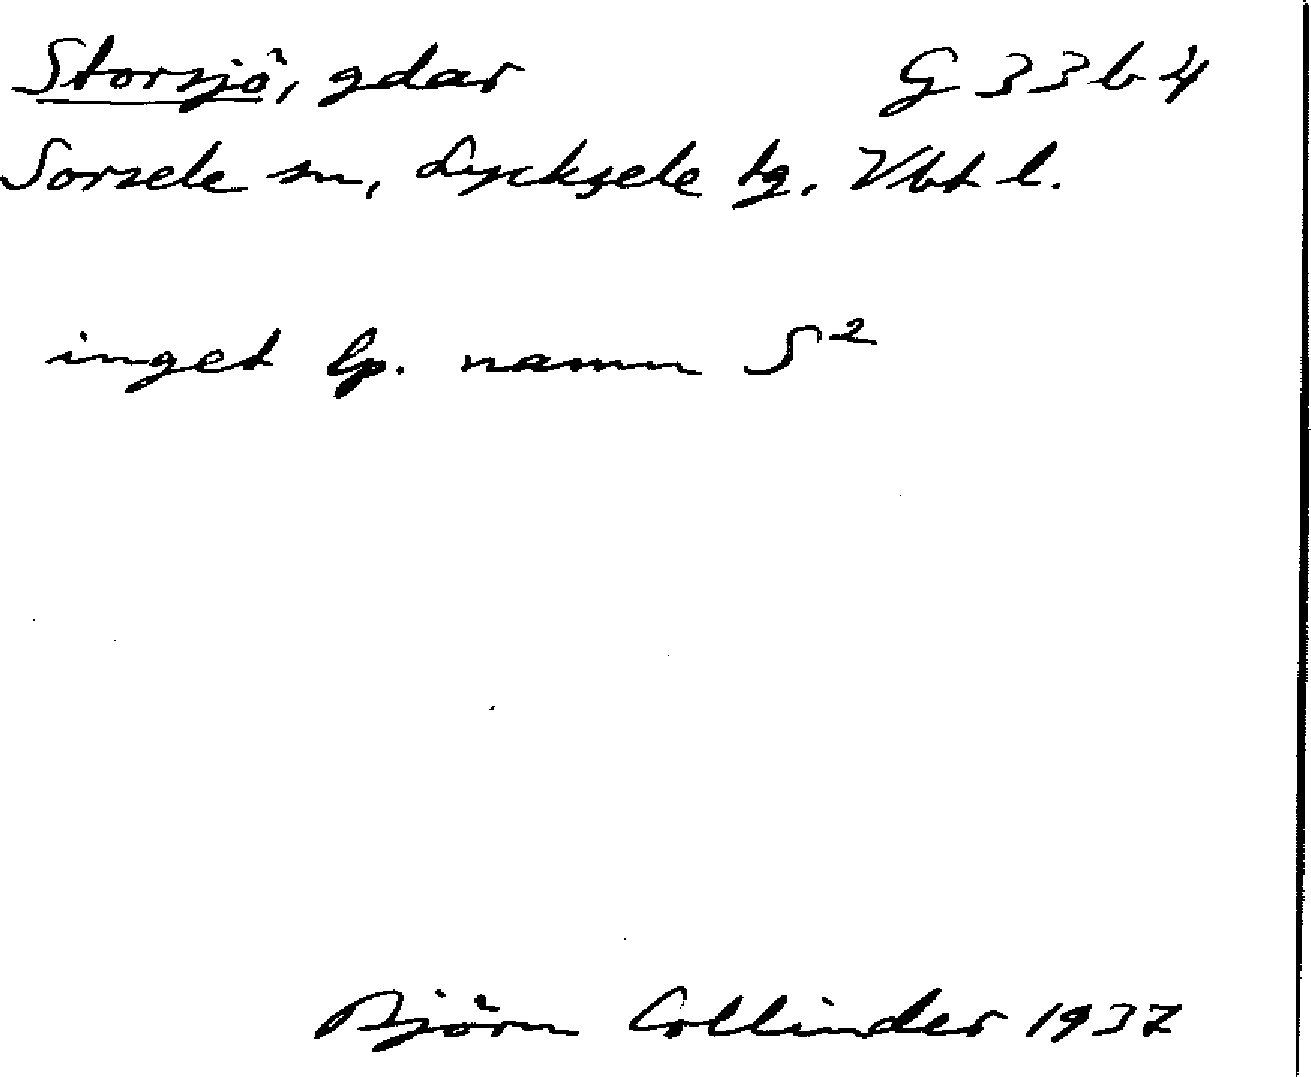 Storsjö, gdar G 33 b 4
Sorsele sn, Lycksele tg. Vbt l.
inget lp. namn S²
Björn Collinder 1937